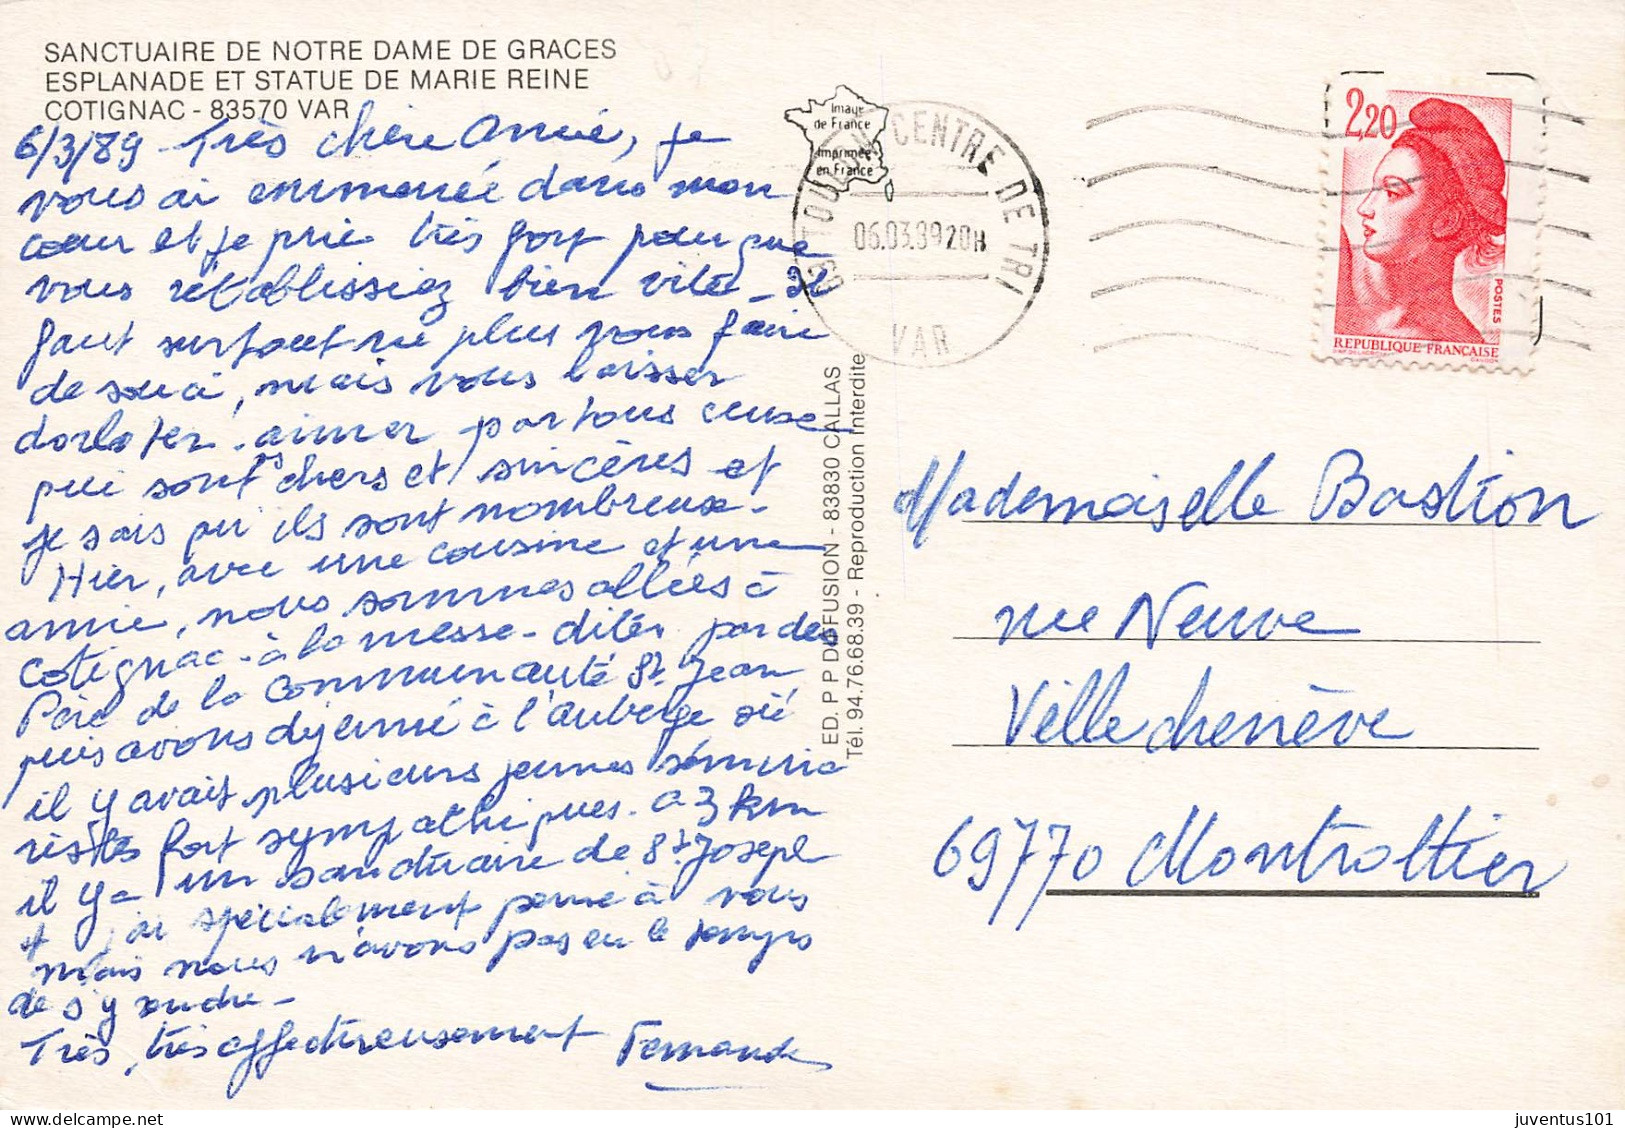 SANCTUAIRE DE NOTRE DAME DE GRACES
ESPLANADE ET STATUE DE MARIE REINE
COTIGNAC - 83570 VAR
6/3/89 - Très chère amie, je
vous ai emmenée dans mon
cœur et je prie très fort pour que
vous rétablissiez bien vite - Il
faut surtout ne plus vous faire
de souci, mais vous laisser
dorloter - aimer par tous ceux
qui sont chers et sincères et
je sais qu'ils sont nombreux -
Hier, avec une cousine et une
amie, nous sommes allées à
Cotignac - à la messe - dites par des
Père de la Communauté St. Jean
puis avons déjeuné à l'auberge où
il y avait plusieurs jeunes sémina
ristes fort sympathiques. a 3 km
il y a un sanctuaire de St. Joseph
+ j'ai spécialement pensé à vous
mais nous n'avons pas eu le temps
de s'y rendre -
Très, très affectueusement Fernande
ED. P P DIFFUSION - 83830 CALLAS
Tél. 94.76.68.39 - Reproduction Interdite
Image
de France
Imprimée
en France
83 TOULON CENTRE DE TRI
06.03.89 20H
VAR
2,20
POSTES
REPUBLIQUE FRANÇAISE
Mademoiselle Bastion
rue Neuve
Villechenève
69770 Montrottier
juventus101